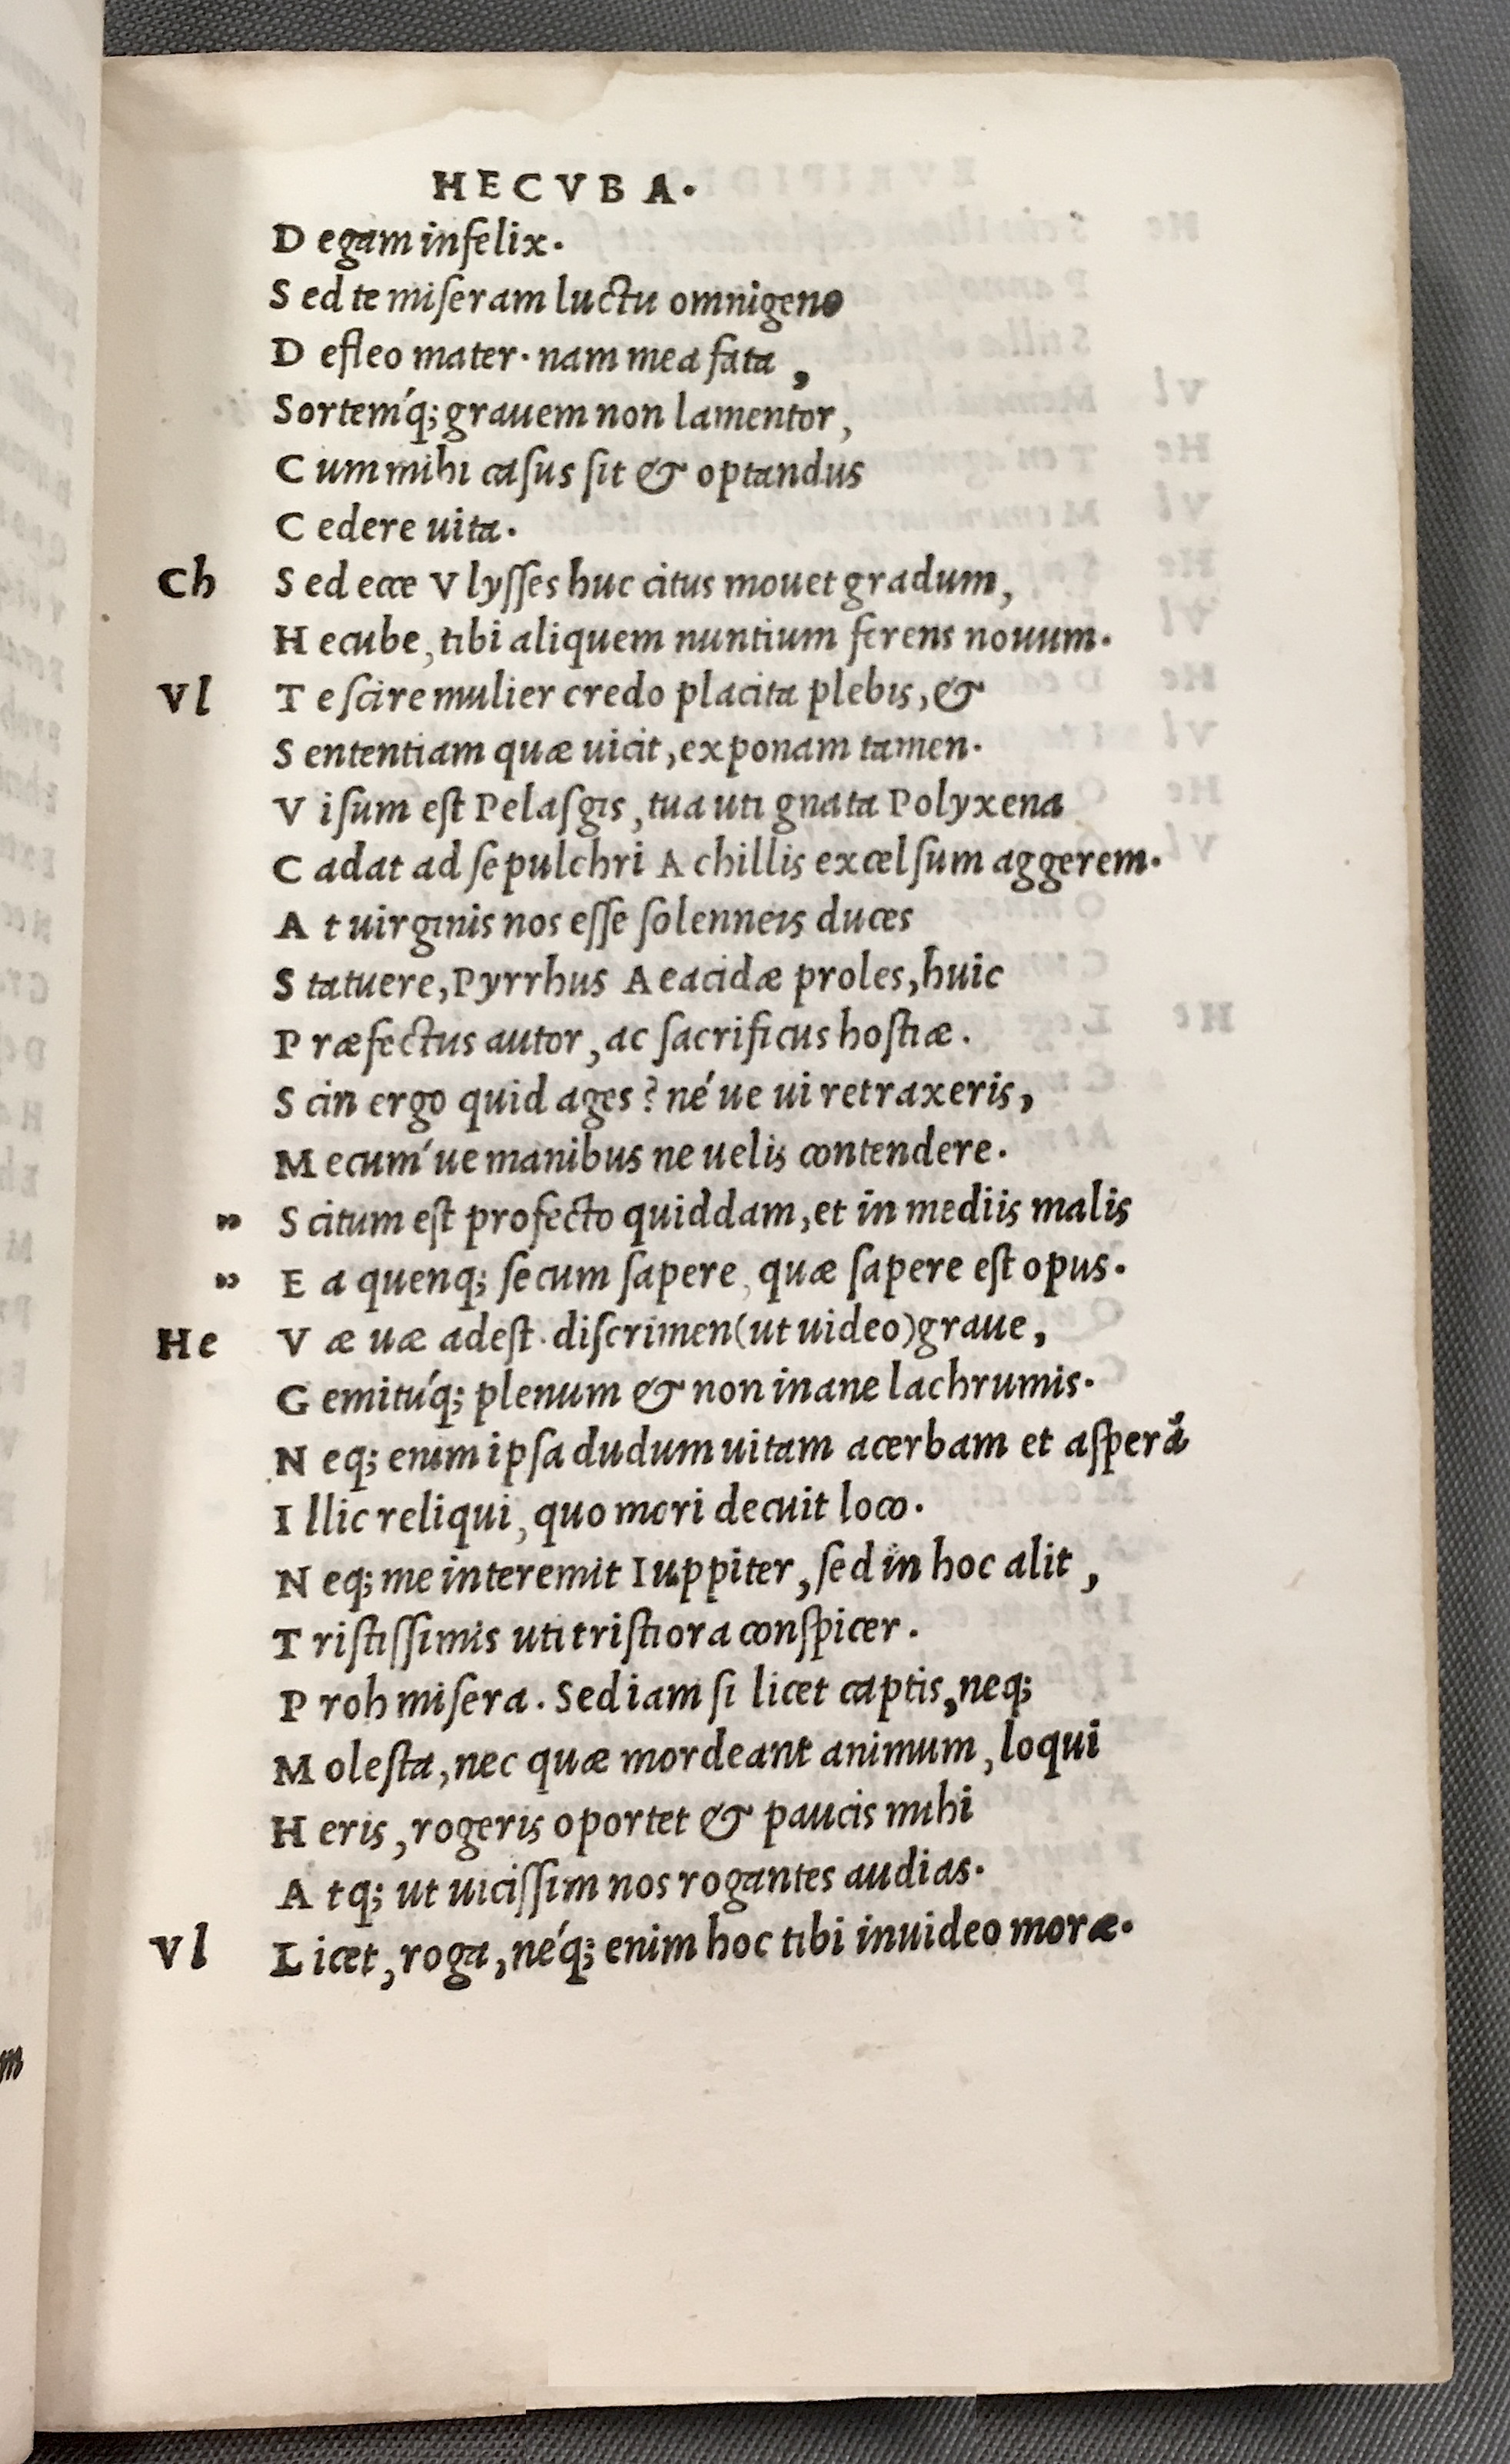 HECVBA.
D egam infelix.
S ed te miſeram luctu omnigeno
D efleo mater. nam mea fata,
Sortem´q; grauem non lamentor,
C um mihi caſus ſit & optandus
C edere uita.
Ch S ed ecce Vlyſſes huc citus mouet gradum,
H ecube, tibi aliquem nuntium ferens nouum.
Vl T e ſcire mulier credo placita plebis, &
S ententiam quæ uicit, exponam tamen.
V iſum eſt Pelaſgis, tua uti gnata Polyxena
C adat ad ſepulchri Achillis excelſum aggerem.
A t uirginis nos eſſe ſolenneis duces
S tatuere, Pyrrhus Aeacidæ proles, huic
P ræfectus autor, ac ſacrificus hoſtiæ.
S cin ergo quid ages? né ue ui retraxeris,
M ecum´ ue manibus ne uelis contendere.
„ S citum eſt profecto quiddam, et in mediis malis
„ E a quenq; ſecum ſapere, quæ ſapere eſt opus.
He V æ uæ adeſt. diſcrimen (ut uideo) graue,
G emitú q; plenum & non inane lachrumis.
N eq; enim ipſa dudum uitam acerbam et aſperā
I llic reliqui, quo mori decuit loco.
N eq; me interemit Iuppiter, ſed in hoc alit,
T riſtiſſimis uti triſtiora conſpicer.
P roh miſera. Sed iam ſi licet captis, neq;
M oleſta, nec quæ mordeant animum, loqui
H eris, rogeris oportet & paucis mihi
A tq; ut uiciſſim nos rogantes audias.
Vl L icet, roga, né q; enim hoc tibi inuideo moræ.